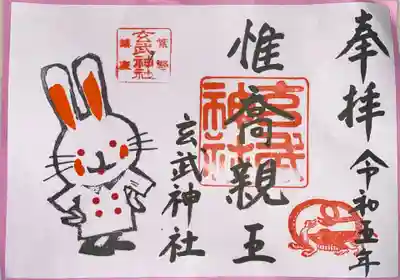 奉拝 令和五年
惟喬親王
玄武
神社
玄武神社
玄武神社